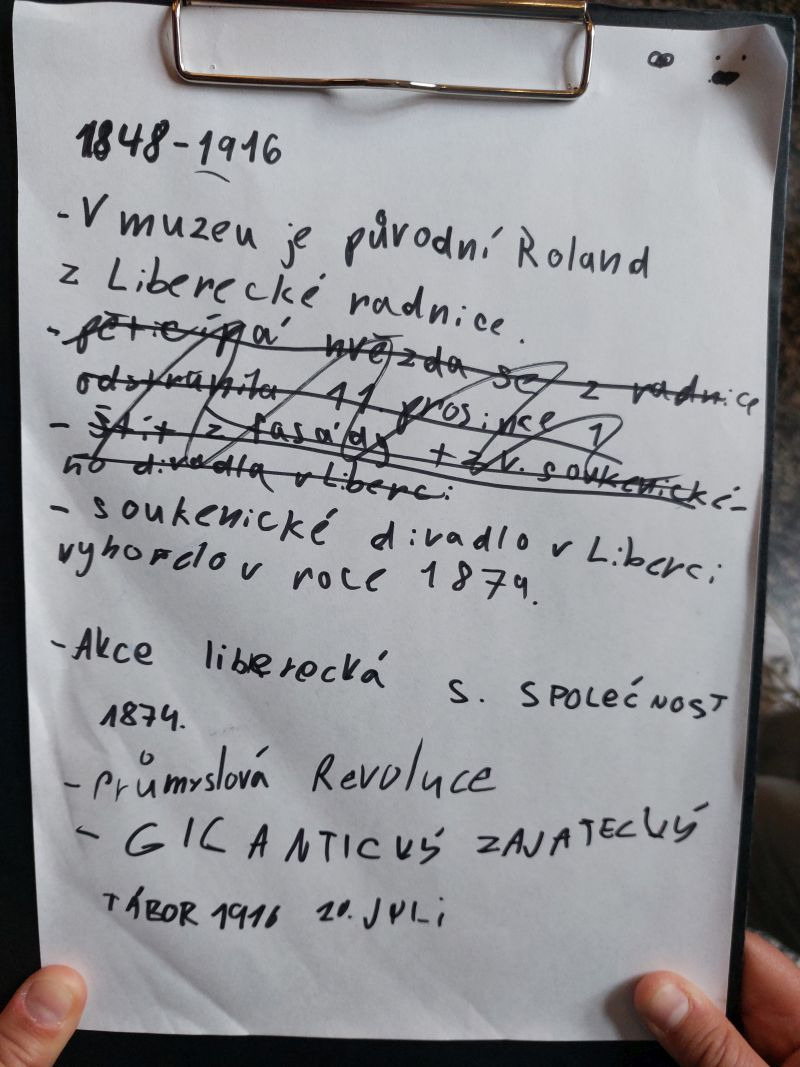 1848-1916
- V muzeu je původní Roland
z Liberecké radnice.
- pěticípá hvězda se z radnice
odstranila 11. prosince 1
- Štít z fasády + zv. soukenické-
ho divadla v Liberci
- soukenické divadlo v Liberci
vyhořelo v roce 1879.
- Akce liberecká s. SPOLEČNOST
1874.
- Průmyslová Revoluce
- GIGANTICKÝ ZAJATECKÝ
TÁBOR 1916 20. JULi